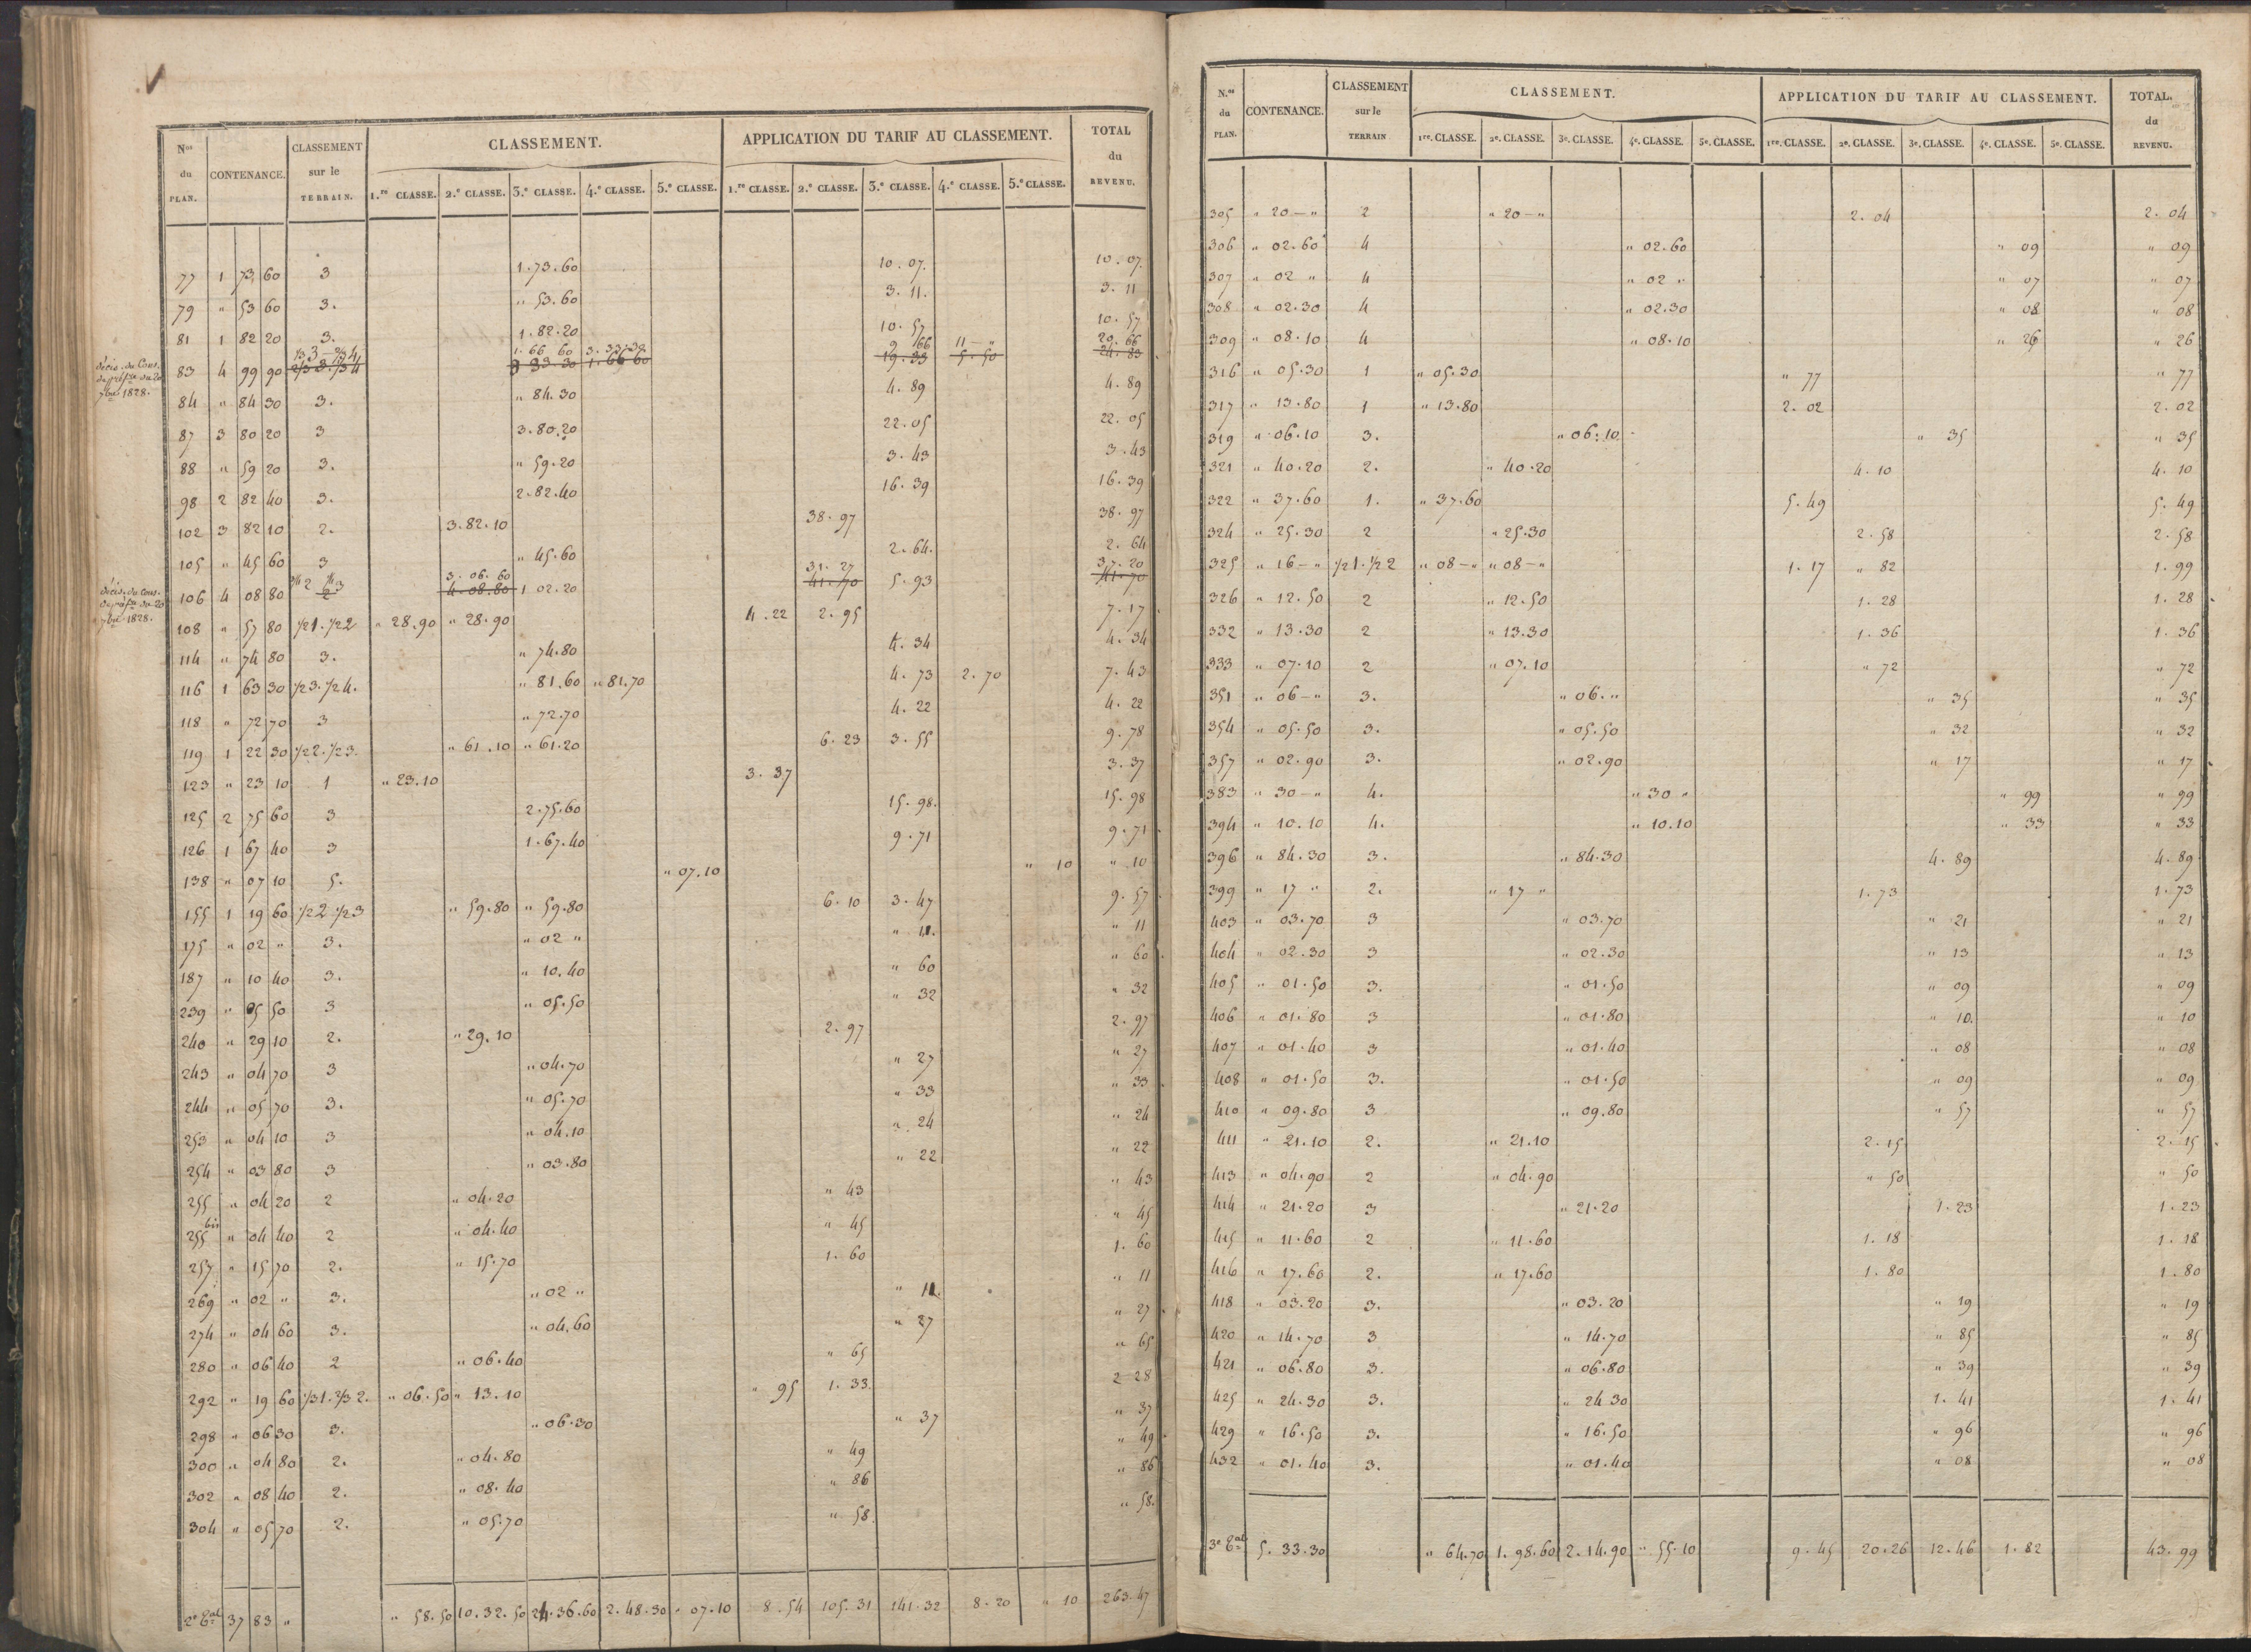 Nos du PLAN. CONTENANCE. CLASSEMENT sur le TERRAIN. CLASSEMENT. APPLICATION DU TARIF AU CLASSEMENT. TOTAL du REVENU.
1.re CLASSE. 2.e CLASSE. 3.e CLASSE. 4.e CLASSE. 5.e CLASSE. 1.re CLASSE. 2.e CLASSE. 3.e CLASSE. 4.e CLASSE. 5.e CLASSE.
77 1 73 60 3 1.73.60 10.07. 10.07.
79 " 53 60 3. " 53.60 3.11. 3.11
81 1 82 20 3. 1.82.20 10.57 10.57
décis. du Cons. de préfre du 20 7bre 1828.
1/3 3 – 2/3 4 1.66 60 3.33.30 9 66 11 – " 20.66
83 4 99 90 2/3 3. 1/3 4 3 33 30 1.66 60 19.33 5.50 24.83
84 " 84 30 3. " 84.30 4.89 4.89
87 3 80 20 3 3.80.20 22.05 22.05
88 " 59 20 3. " 59.20 3.43 3.43
98 2 82 40 3. 2.82.40 16.39 16.39
102 3 82 10 2. 3.82.10 38.97 38.97
105 " 45 60 3 " 45.60 2.64. 2.64
décis. du Cons. de préfre du 20 7bre 1828.
3.06.60 31.27 37.20
106 4 08 80 3/4 2 1/4 3 4.08.80 1 02.20 41.70 5.93 41.70
108 " 57 80 1/2 1. 1/2 2 " 28.90 " 28.90 4.22 2.95 7.17
114 " 74 80 3. " 74.80 4.34 4.34
116 1 63 30 1/2 3. 1/2 4. " 81.60 " 81.70 4.73 2.70 7.43
118 " 72 70 3 " 72.70 4.22 4.22
119 1 22 30 1/2 2. 1/2 3. " 61.10 " 61.20 6.23 3.55 9.78
123 " 23 10 1 " 23.10 3.37 3.37
125 2 75 60 3 2.75.60 15.98. 15.98
126 1 67 40 3 1.67.40 9.71 9.71
138 " 07 10 5. " 07.10 " 10 " 10
155 1 19 60 1/2 2 1/2 3 " 59.80 " 59.80 6.10 3.47 9.57
175 " 02 " 3. " 02 " " 11. " 11
187 " 10 40 3. " 10.40 " 60 " 60
239 " 05 50 3 " 05.50 " 32 " 32
240 " 29 10 2. " 29.10 2.97 2.97
243 " 04 70 3 " 04.70 " 27 " 27
244 " 05 70 3. " 05.70 " 33 " 33
253 " 04 10 3 " 04.10 " 24 " 24
254 " 03 80 3 " 03.80 " 22 " 22
255 " 04 20 2 " 04.20 " 43 " 43
255 bis " 04 40 2 " 04.40 " 45 " 45
257 " 15 70 2. " 15.70 1.60 1.60
269 " 02 " 3. " 02 " " 11. " 11
274 " 04 60 3. " 04.60 " 27 " 27
280 " 06 40 2 " 06.40 " 65 " 65
292 " 19 60 1/3 1. 2/3 2. " 06.50 " 13.10 " 95 1.33. 2 28
298 " 06 30 3. " 06.30 " 37 " 37
300 " 04 80 2. " 04.80 " 49 " 49
302 " 08 40 2. " 08.40 " 86 " 86
304 " 05 70 2. " 05.70 " 58. " 58.
2e Tal 37 83 " " 58.50 10.32.50 24.36.60 2.48.30 " 07.10 8.54 105.31 141.32 8.20 " 10 263.47
N.os du PLAN. CONTENANCE. CLASSEMENT sur le TERRAIN CLASSEMENT. APPLICATION DU TARIF AU CLASSEMENT. TOTAL. du REVENU.
1re. CLASSE. 2e. CLASSE. 3e. CLASSE. 4e. CLASSE. 5e. CLASSE. 1re. CLASSE. 2e. CLASSE. 3e. CLASSE. 4e. CLASSE. 5e. CLASSE.
305 " 20 – " 2 " 20 – " 2.04 2.04
306 " 02.60 4 " 02.60 " 09 " 09
307 " 02 " 4 " 02 " " 07 " 07
308 " 02.30 4 " 02.30 " 08 " 08
309 " 08.10 4 " 08.10 " 26 " 26
316 " 05.30 1 " 05.30 " 77 " 77
317 " 13.80 1 " 13.80 2.02 2.02
319 " 06.10 3. " 06.10 " 35 " 35
321 " 40.20 2. " 40.20 4.10 4.10
322 " 37.60 1. " 37.60 5.49 5.49
324 " 25.30 2 " 25.30 2.58 2.58
325 " 16 – " 1/2 1. 1/2 2 " 08 – " " 08 – " 1.17 " 82 1.99
326 " 12.50 2 " 12.50 1.28 1.28
332 " 13.30 2 " 13.30 1.36 1.36
333 " 07.10 2 " 07.10 " 72 " 72
351 " 06 – " 3. " 06. " " 35 " 35
354 " 05.50 3. " 05.50 " 32 " 32
357 " 02.90 3. " 02.90 " 17 " 17
383 " 30 – " 4. " 30 " " 99 " 99
394 " 10.10 4. " 10.10 " 33 " 33
396 " 84.30 3. " 84.30 4.89 4.89
399 " 17 " 2. " 17 " 1.73 1.73
403 " 03.70 3 " 03.70 " 21 " 21
404 " 02.30 3 " 02.30 " 13 " 13
405 " 01.50 3. " 01.50 " 09 " 09
406 " 01.80 3 " 01.80 " 10. " 10
407 " 01.40 3 " 01.40 " 08 " 08
408 " 01.50 3. " 01.50 " 09 " 09
410 " 09.80 3 " 09.80 " 57 " 57
411 " 21.10 2. " 21.10 2.15 2.15
413 " 04.90 2 " 04.90 " 50 " 50
414 " 21.20 3 " 21.20 1.23 1.23
415 " 11.60 2 " 11.60 1.18 1.18
416 " 17.60 2. " 17.60 1.80 1.80
418 " 03.20 3. " 03.20 " 19 " 19
420 " 14.70 3 " 14.70 " 85 " 85
421 " 06.80 3. " 06.80 " 39 " 39
425 " 24.30 3. " 24 30 1.41 1.41
429 " 16.50 3. " 16.50 " 96 " 96
432 " 01.40 3. " 01.40 " 08 " 08
3e Tal 5.33.30 " 64.70 1.98.60 2.14.90 " 55.10 9.45 20.26 12.46 1.82 43.99